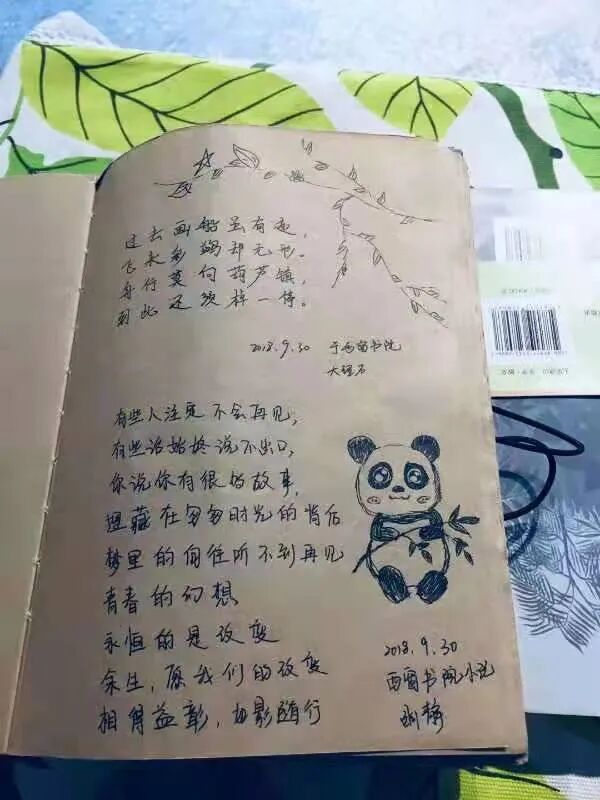 过去画船虽有迹,
飞来彩鹢却无形。
舟行莫向葫芦镇,
到此还须棹一停。
2018.9.30 于西窗书院
大理石
有些人注定不会再见,
有些话始终说不出口,
你说你有很多故事,
埋藏在匆匆时光的背后
梦里的向往听不到再见
青春的幻想
永恒的是改变
余生,愿我们的改变
相得益彰,如影随行
2018.9.30
西窗书院小说